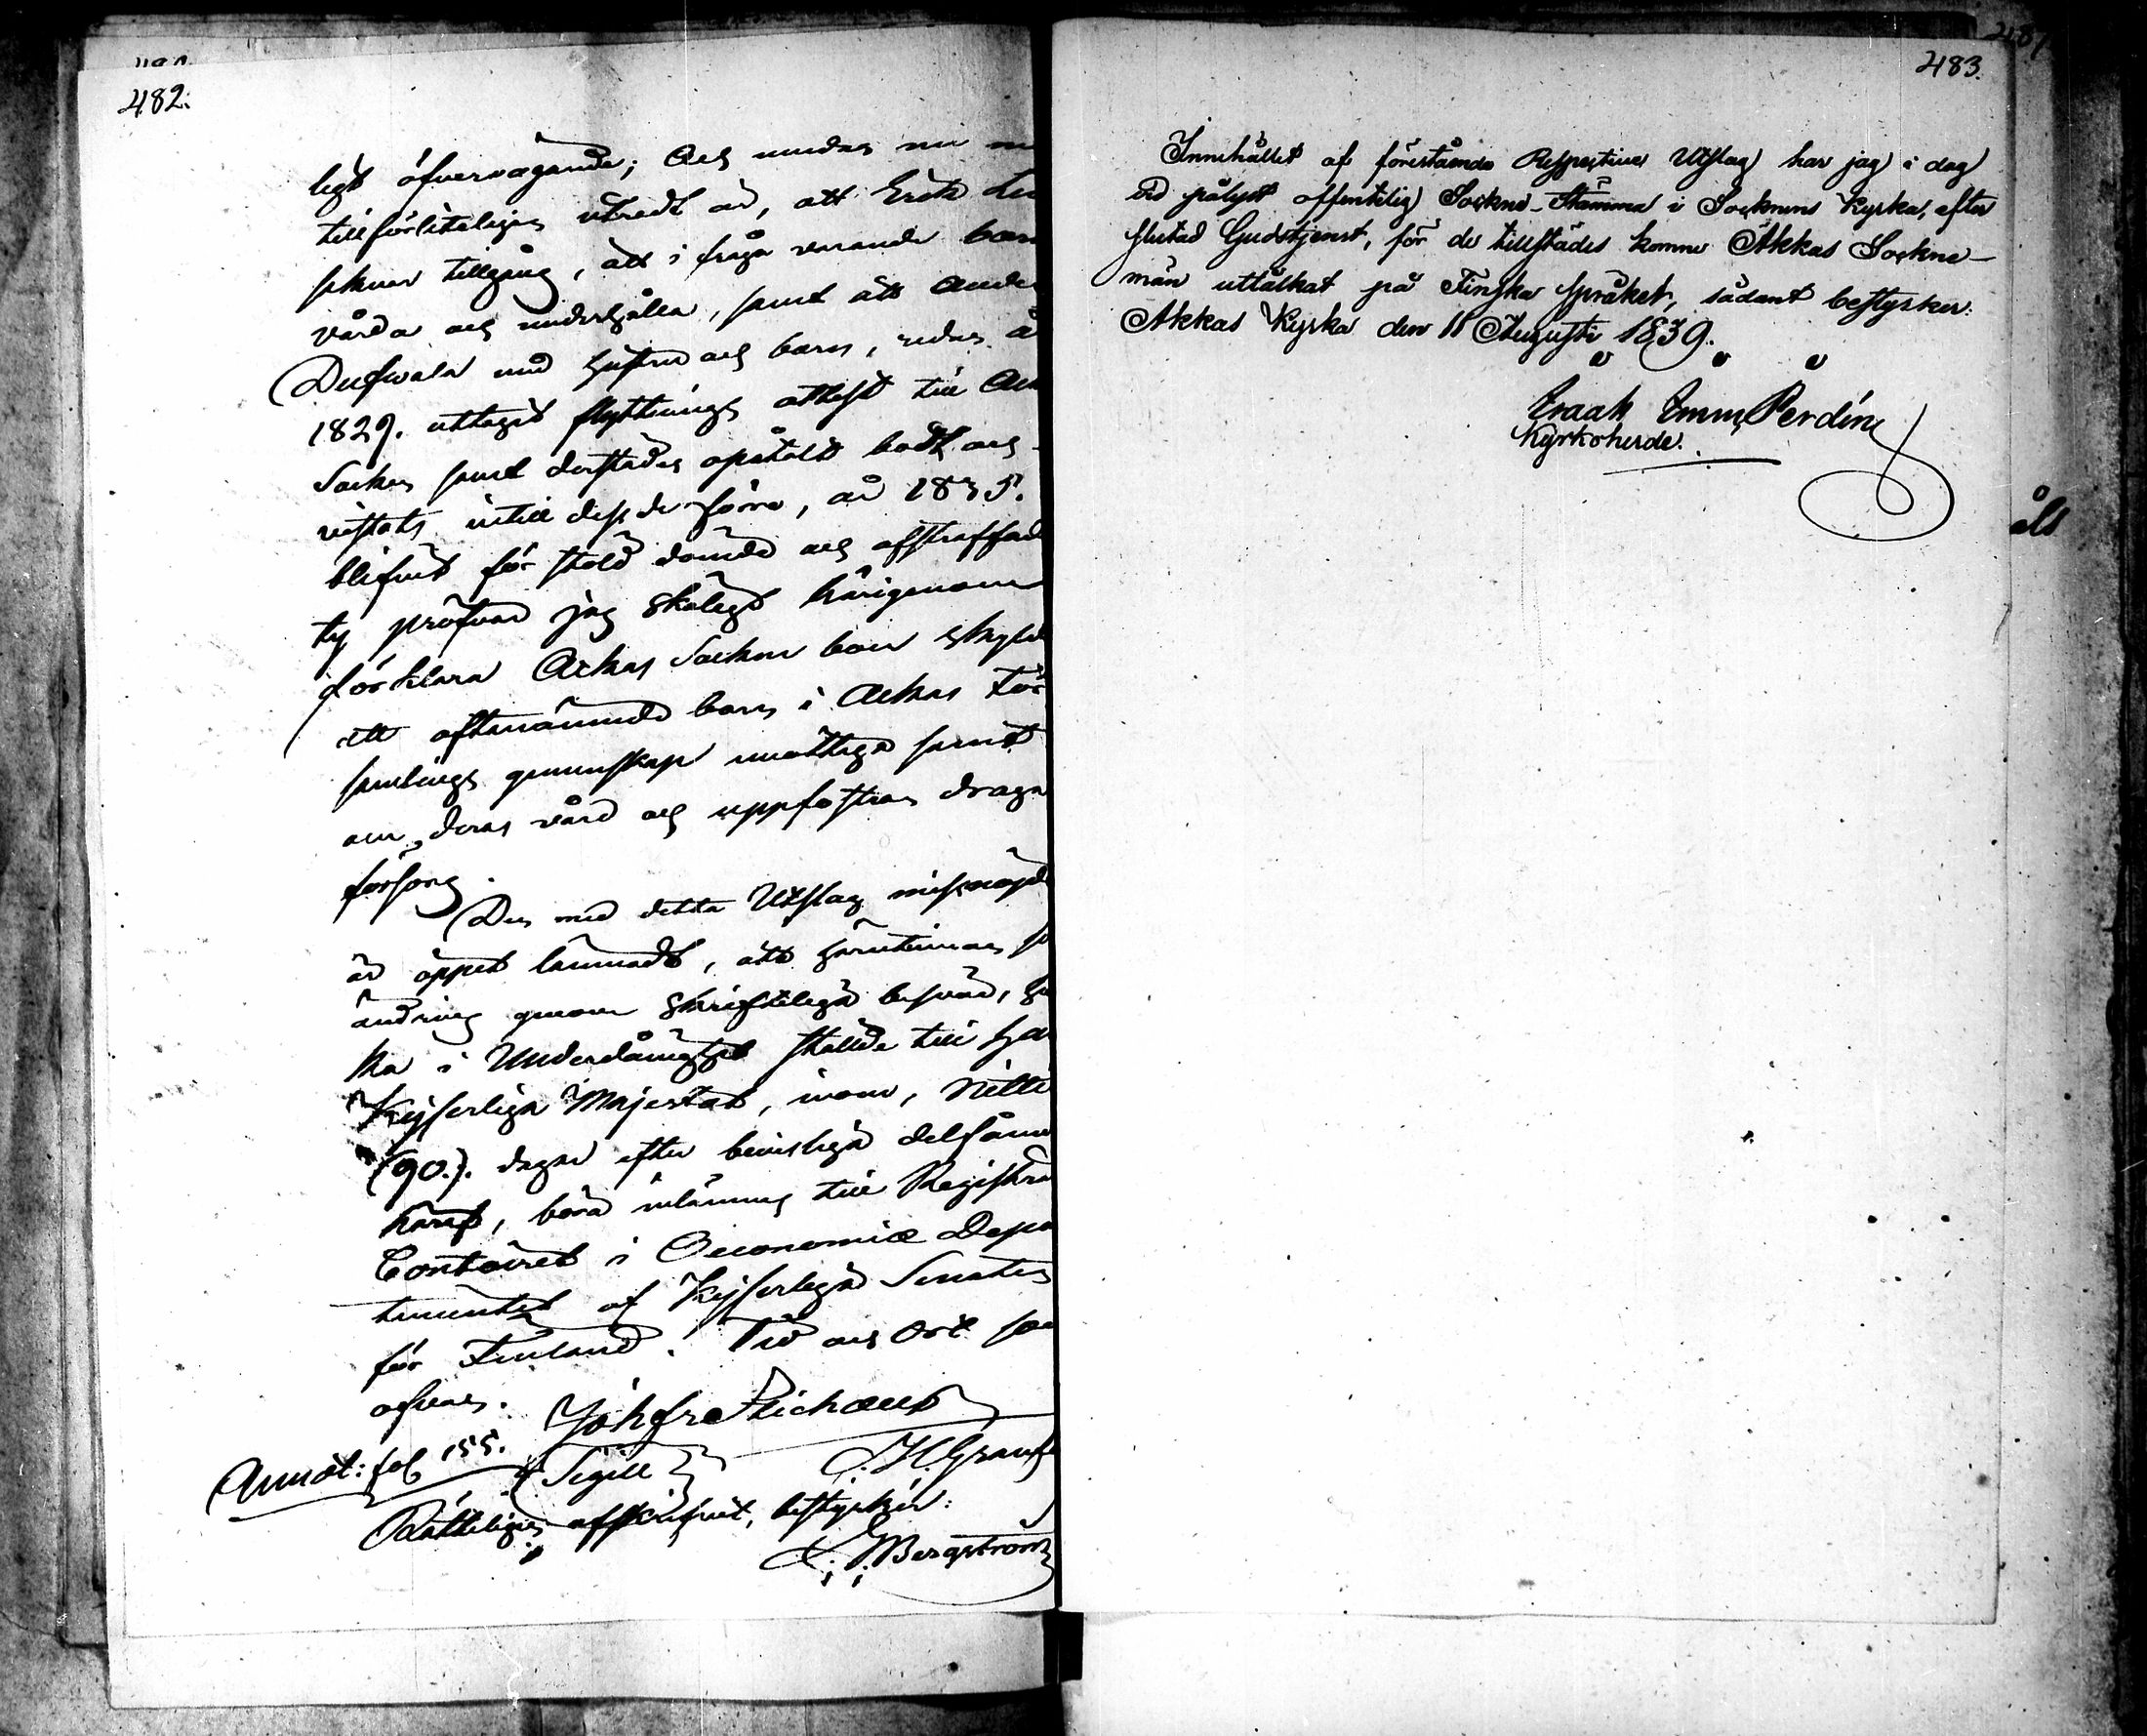 482.
ligt öfvervägande; Och medan nu
tillförliteligen utredt är, att Erik
saknar tillgång, att i fråga varande barn
vårda och underhålla, samt att Ander
Dufwala med hustru och barn, redan å
1829. uttagit flyttnings attest till Ack
Socken samt derstädes opåtalt bodt och
vistats intill dess de förra, år 1835.
blifvit för stöld dömde och afstraffad
ty pröfvar jag skäligt härigenom
förklara Ackas Socken boer skyld
att oftanämnde barn i Ackas För
samlings gemenskap emottaga samt
om deras vård och uppfostran draga
försorg.
Den med detta Utslag missnöjd
är öppet lämnadt, att häruti
ändring genom skrifteliga besvär,
ka i Underdånighet ställde till Ha
Kejserliga Majestät, inom, Nitti
(90.). dagar efter bevisliga delfåen
häraf, böra inlämnas till Registra
Contoiret i Oeconomiæ Depa
tementet af Kejserliga Senaten
för Finland. Tid och Ort so
ofvan.
Annot: fol 155.
Sigill
Rätteligen afskrifvit, bestyrker:
Bergström
483.
Innehållet af förestående Respective Utslag har jag i dag
vid pålyst offentelig Sockne-Stämma i Socknens Kyrka, efter
slutad Gudstjenst, för de tillstädes komne Akkas Sockne-
män uttålkat på Finska språket, sådant bestyrker:
Akkas Kyrka den 11 Augusti 1839.
Isaak Emm. Perdén
Kyrkoherde.